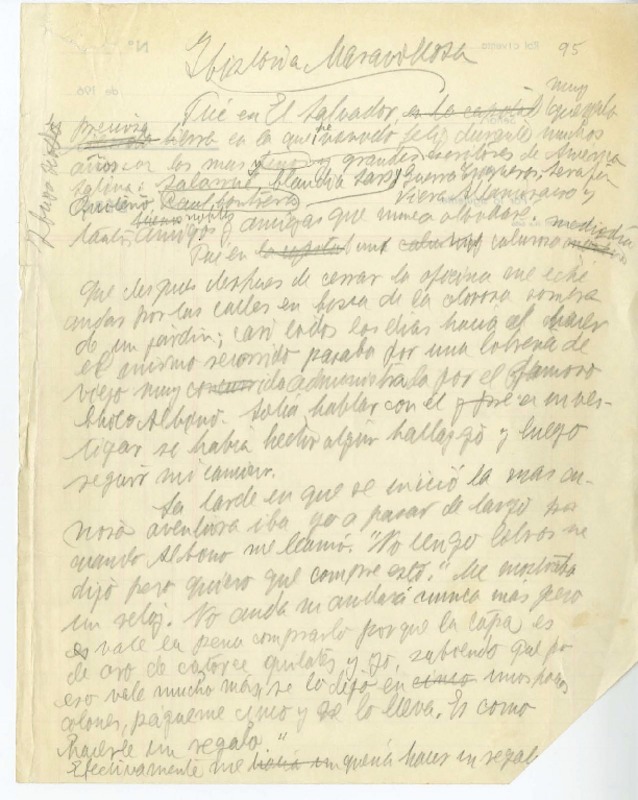 Historia Maravillosa
95
Fué en El Salvador, en la capital muy querida
preciosa tierra en la que he vivido feliz durante muchos
años con los mas finos y grandes escritores de America
Latina: Salarrué, Claudia Lars, Guerra Trigueros, Serafín
Quiteño, Raul Contreras Viera Altamirano y
tantos buenos nobles amigos y amigas que nunca olvidaré.
Fué en la capital una calurosa mediodía
que despues de cerrar la oficina me eché
andar por las calles en busca de la sombra
de un jardín; casi todos los días hacia al hacer
el mismo recorrido pasaba por una librería de
viejo muy concurrida administrada por el famoso
Choco Albono. Solía hablar con el en inves-
tigar si había hecho algún hallazgo y luego
seguir mi camino.
La tarde en que se inició la mas cu-
riosa aventura iba yo a pasar de largo
cuando Albono me llamó. "No tengo libros me
dijo pero quiero que compre esto." Me mostraba
un reloj. No anda ni andará nunca más pero
vale la pena comprarlo porque la tapa es
de oro de catorce quilates y yo, sabiendo que por
eso vale mucho más, se lo dejo en cinco unos pocos
colones, págueme cinco y se lo lleva. Es como
hacerle un regalo"
Efectivamente me había un quería hacer un regalo